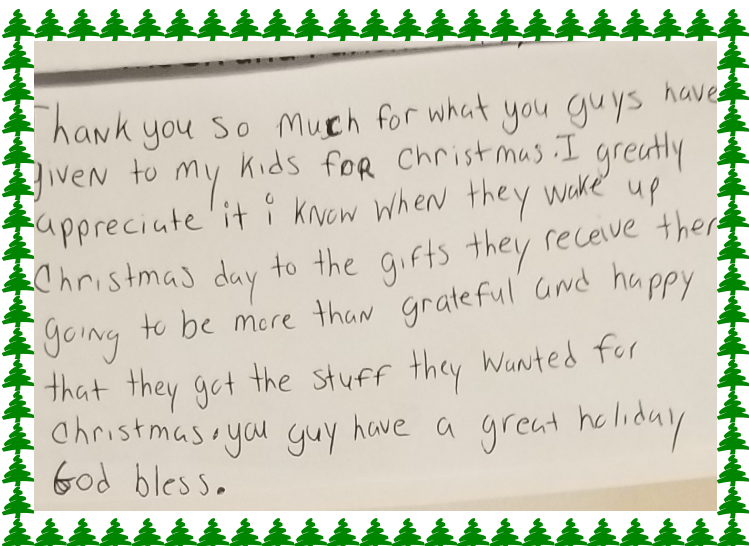 Thank you so much for what you guys have
given to my kids for Christmas. I greatly
appreciate it i know when they wake up
Christmas day to the gifts they receive ther
going to be more than grateful and happy
that they got the stuff they wanted for
Christmas. you guy have a great holiday
God bless.